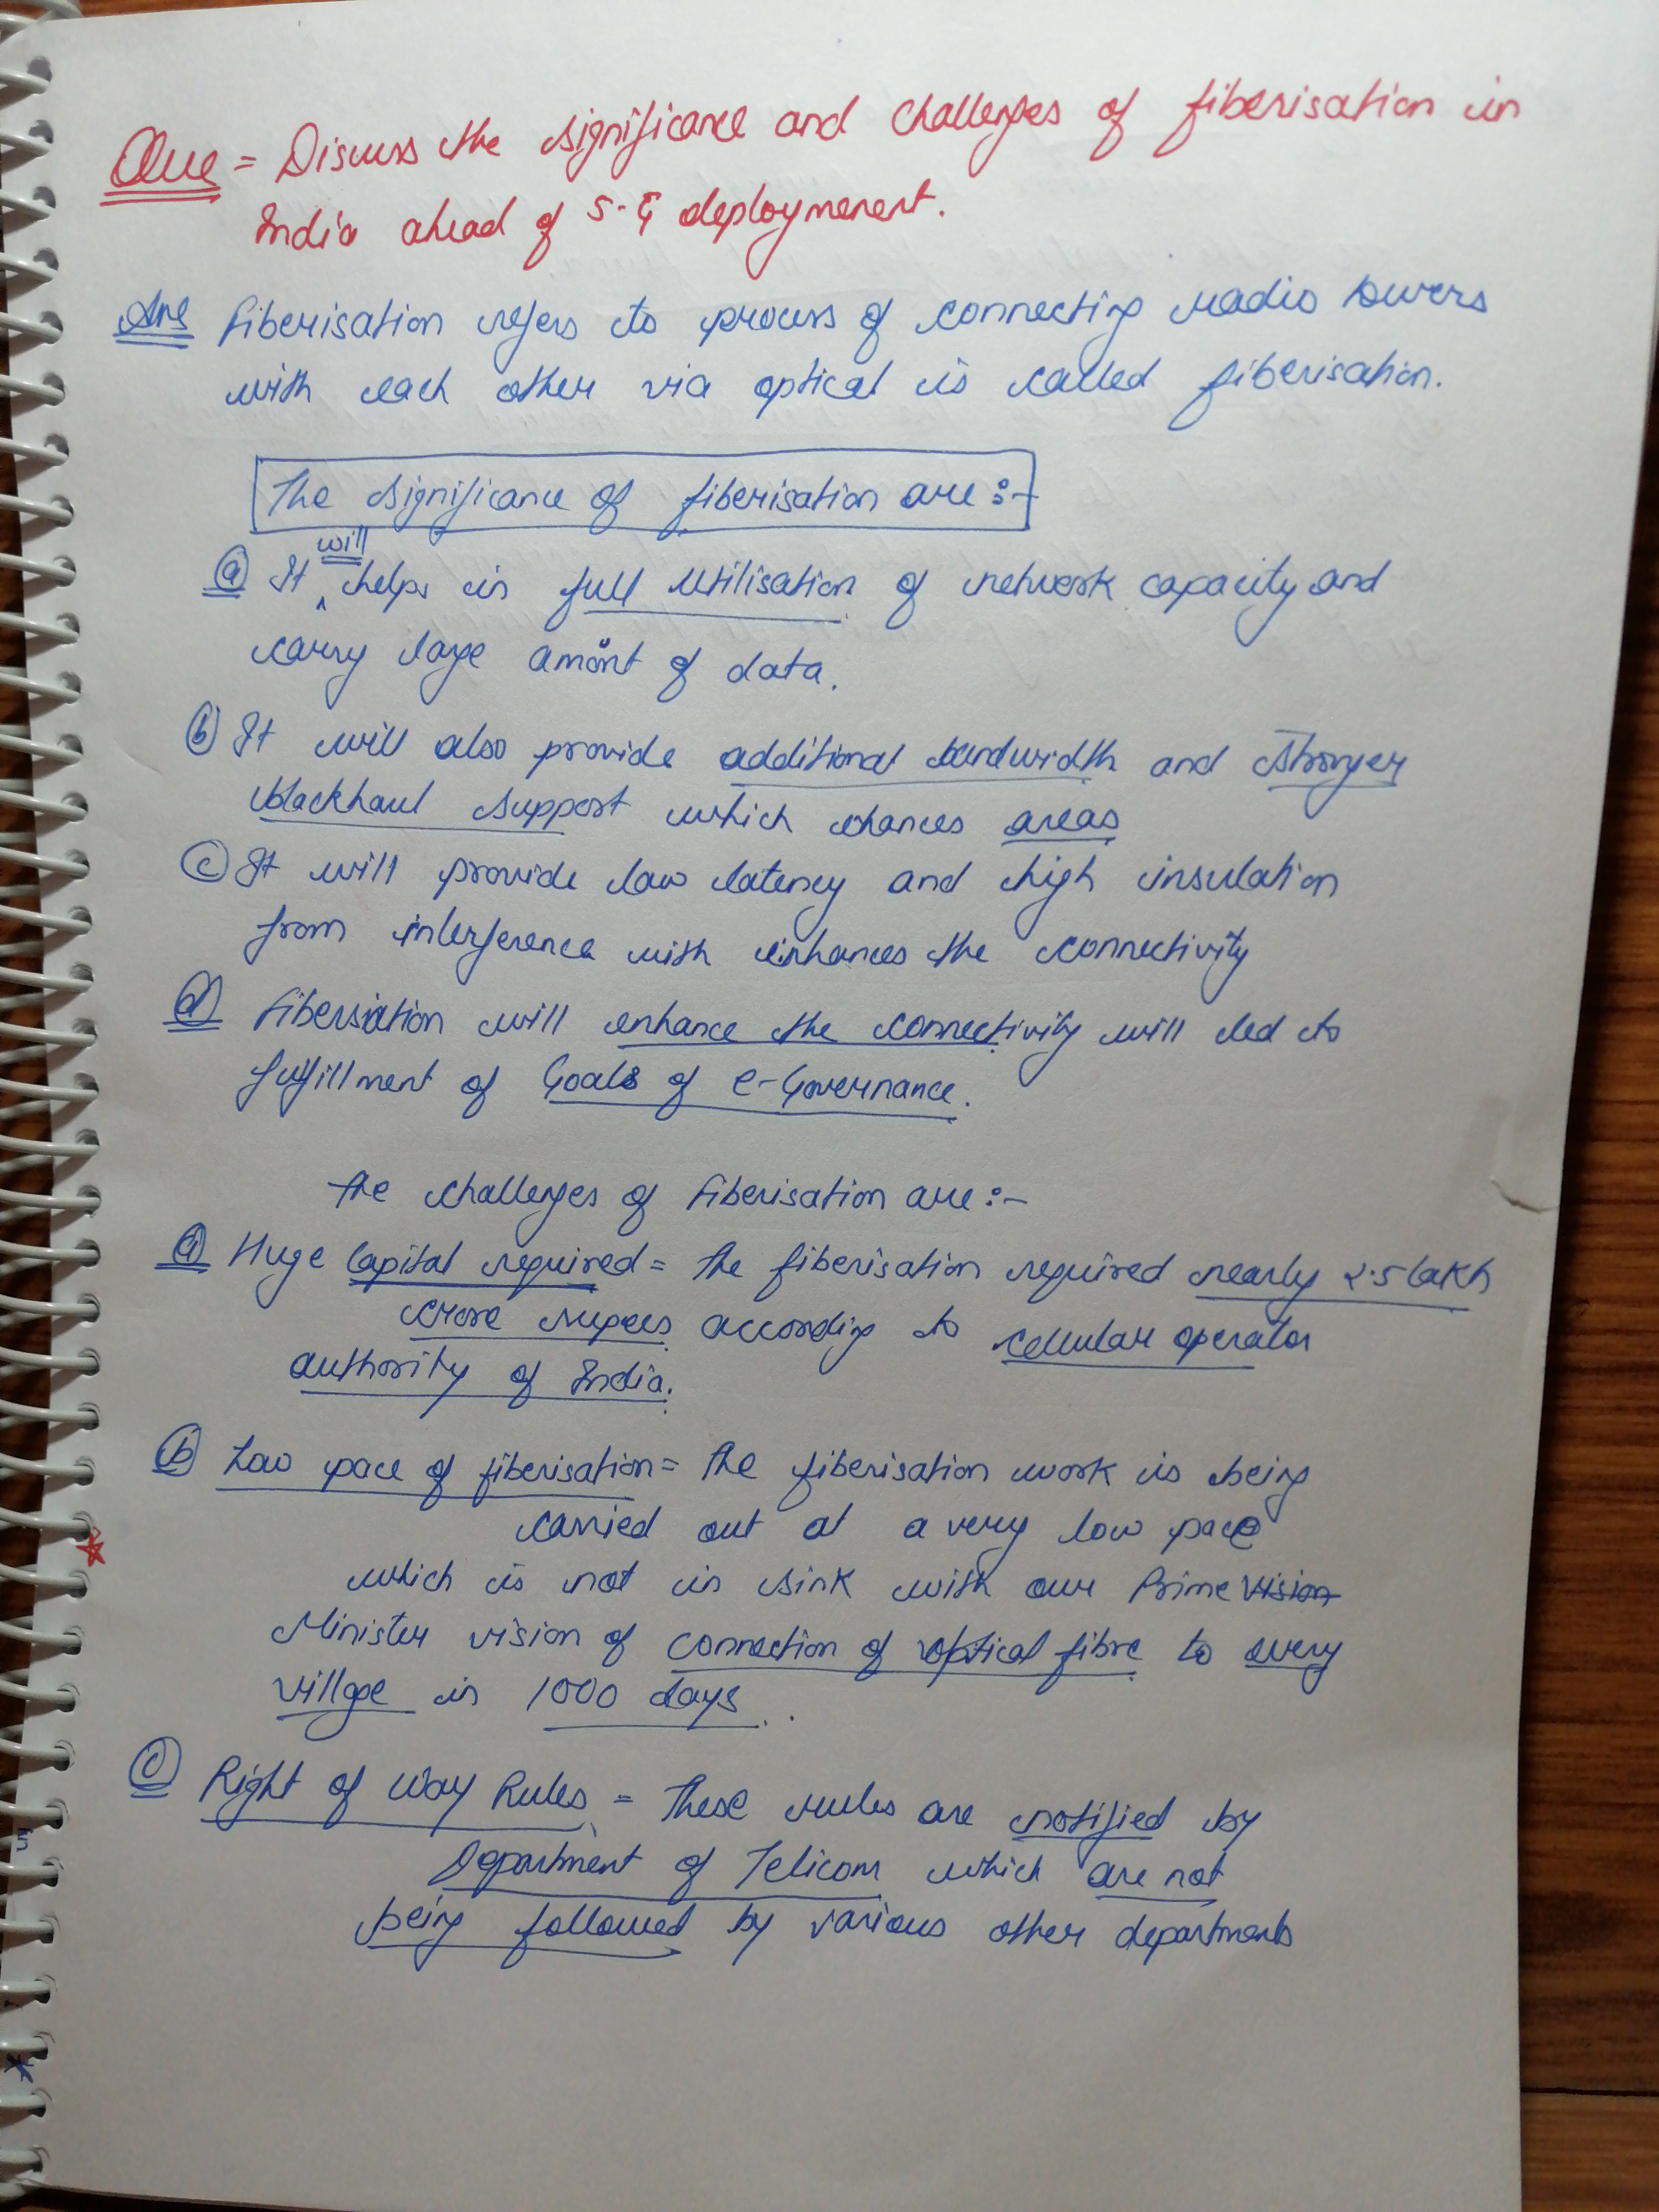 Que = Discuss the significance and challenges of fiberisation in
India ahead of 5-G deploymenent.
Ans fiberisation refers to process of connecting radio towers
with each other via optical is called fiberisation.
The significance of fiberisation are :-
will
(a) It ^ helps in full utilisation of network capacity and
carry large amount of data.
(b) It will also provide additional bandwidth and stronger
blackhaul support which ehances areas
(c) It will provide low latency and high insulation
from interference with enhances the connectivity
(d) fibersiation will enhance the connectivity will led to
fulfillment of Goals of e-Governance.
The challenges of fiberisation are :-
(a) Huge Capital required = The fiberisation required nearly 2.5 lakh
crore rupees according to cellular operator
authority of India.
(b) Low pace of fiberisation = The fiberisation work is being
carried out at a very low pace
which is not in sink with our Prime vision
Minister vision of connection of optical fibre to every
villge in 1000 days.
(c) Right of Way Rules = These rules are notified by
Department of Telicom which are not
being followed by various other departments